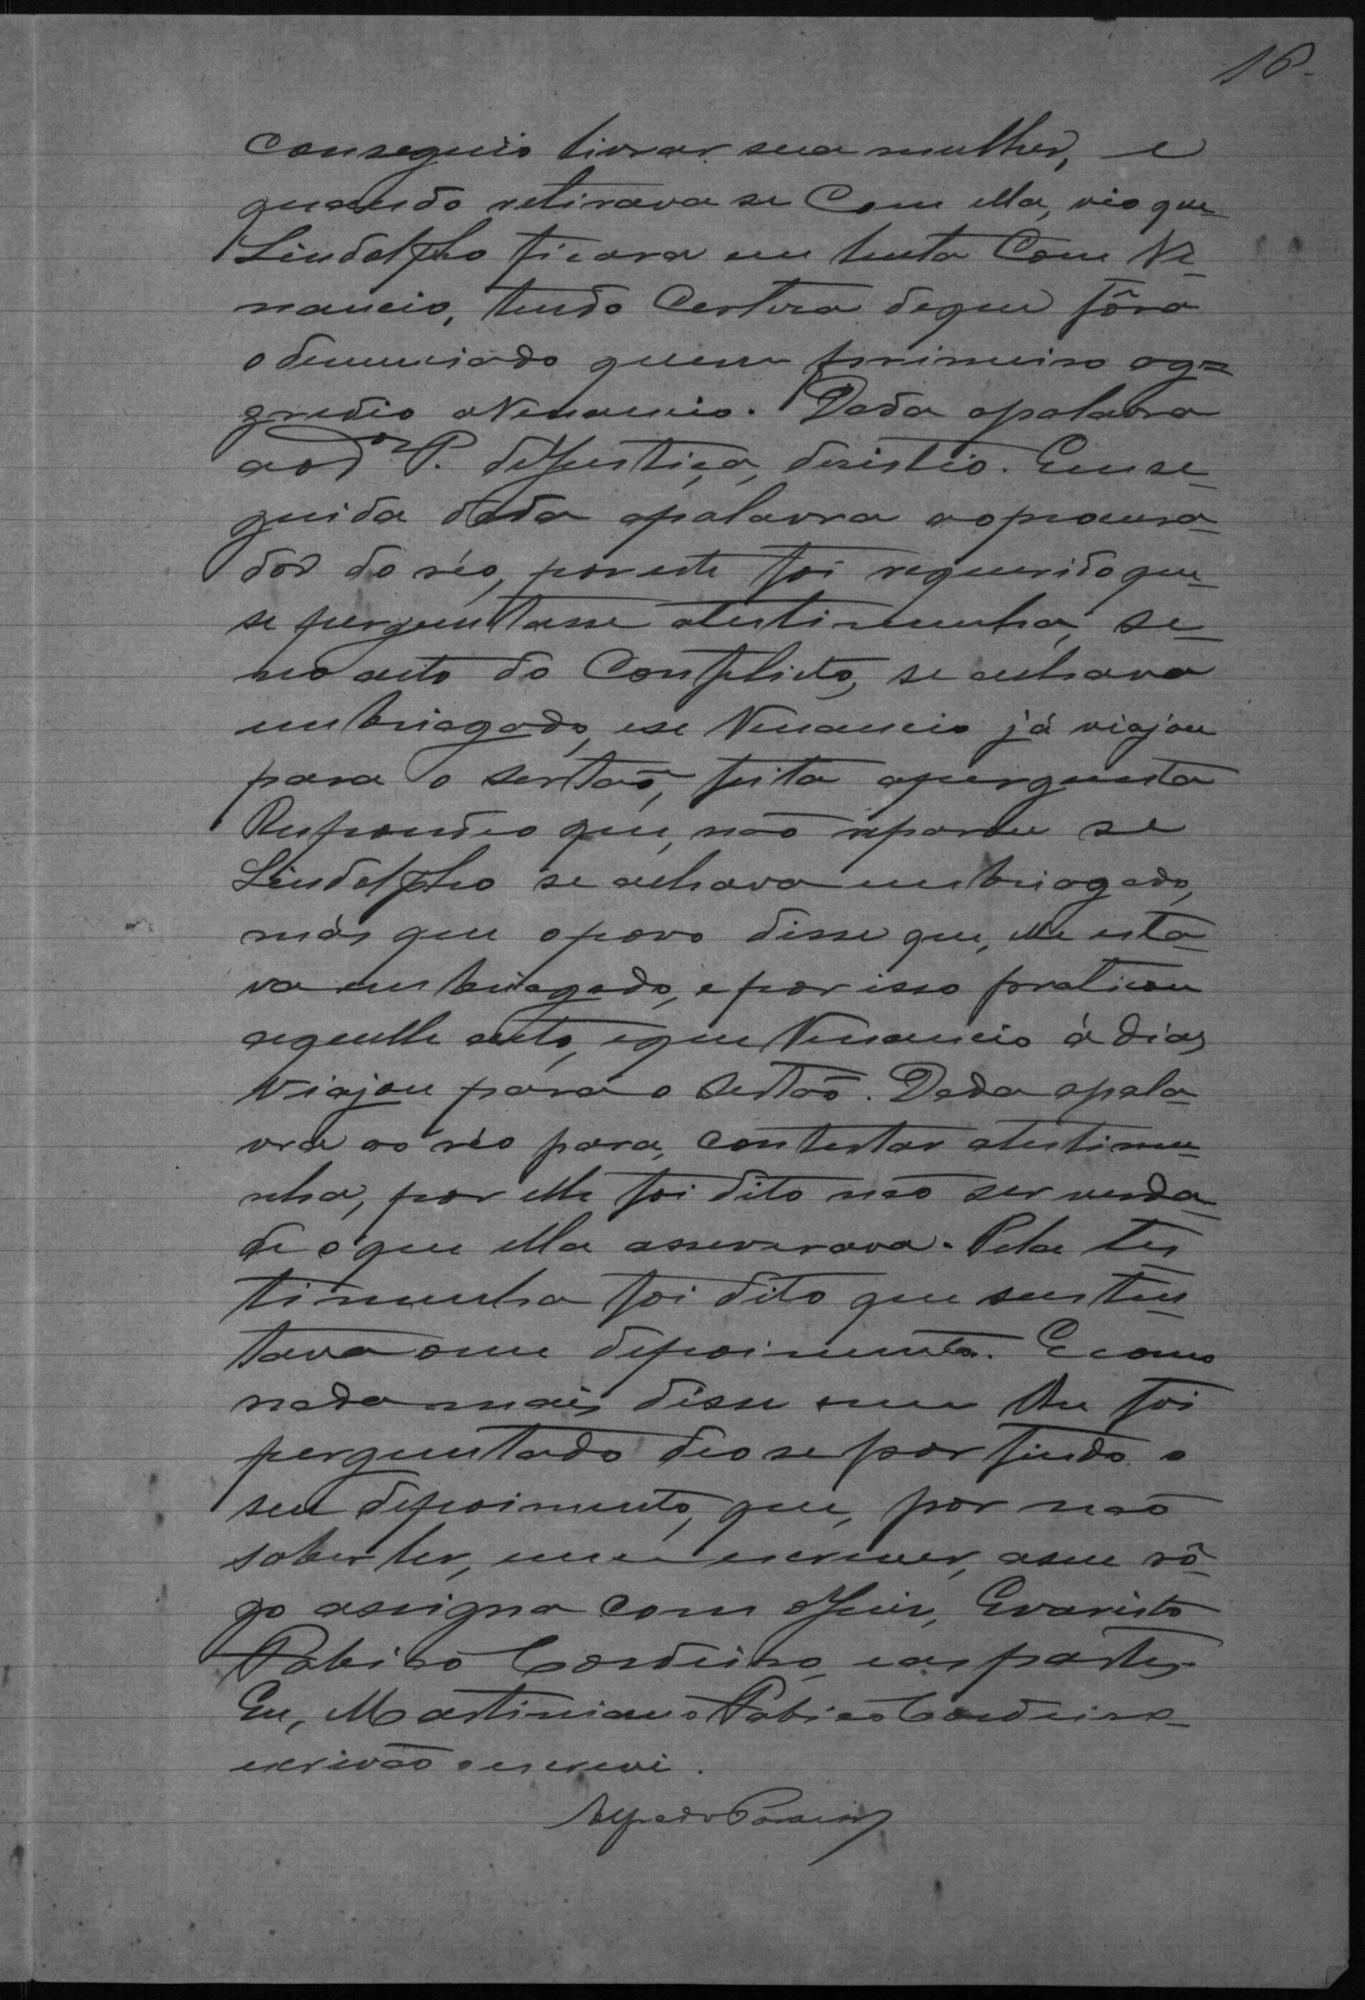 16
conseguio livrar sua mulher, e
quando retirava se com ella, vio que
Lindolpho ficara em lucta com Ve-
nancio, tendo certesa de que fôra
o denunciado quem primeiro ag=
gredio a Venancio. Dada a palavra
ao Dor P. de Justiça, desistio. Em se-
guida dada a palavra ao procura-
dor do réo, por este foi requerido que
se perguntasse a testimunha, se
no acto do conflicto, se achava
embriagado, e se Venancio já viajou
para o sertão, feita a pergunta
Respondeo que, não reparou se
Lindolpho se achava embriagado,
más que o povo disse que, elle esta-
va embriagado, e por isso praticou
aquelle acto, e que Venancio á dias
viajou para o sertão. Dada a pala-
vra ao réo para, contestar a testimu-
nha, por elle foi dito não ser verda-
de o que ella asseverava. Pela tes
timunha foi dito que susten
tava o seu depoimento. E como
nada mais disse nem lhe foi
perguntado deo se por findo o
seu depoimento, que, por não
saber ler, nem escrever, a seu rô-
go assigna com o Juiz, Evaristo
Cordeiro, e as partes
Eu, Martiniano Cordeiro
escrivão o escrevi.
Alfredo